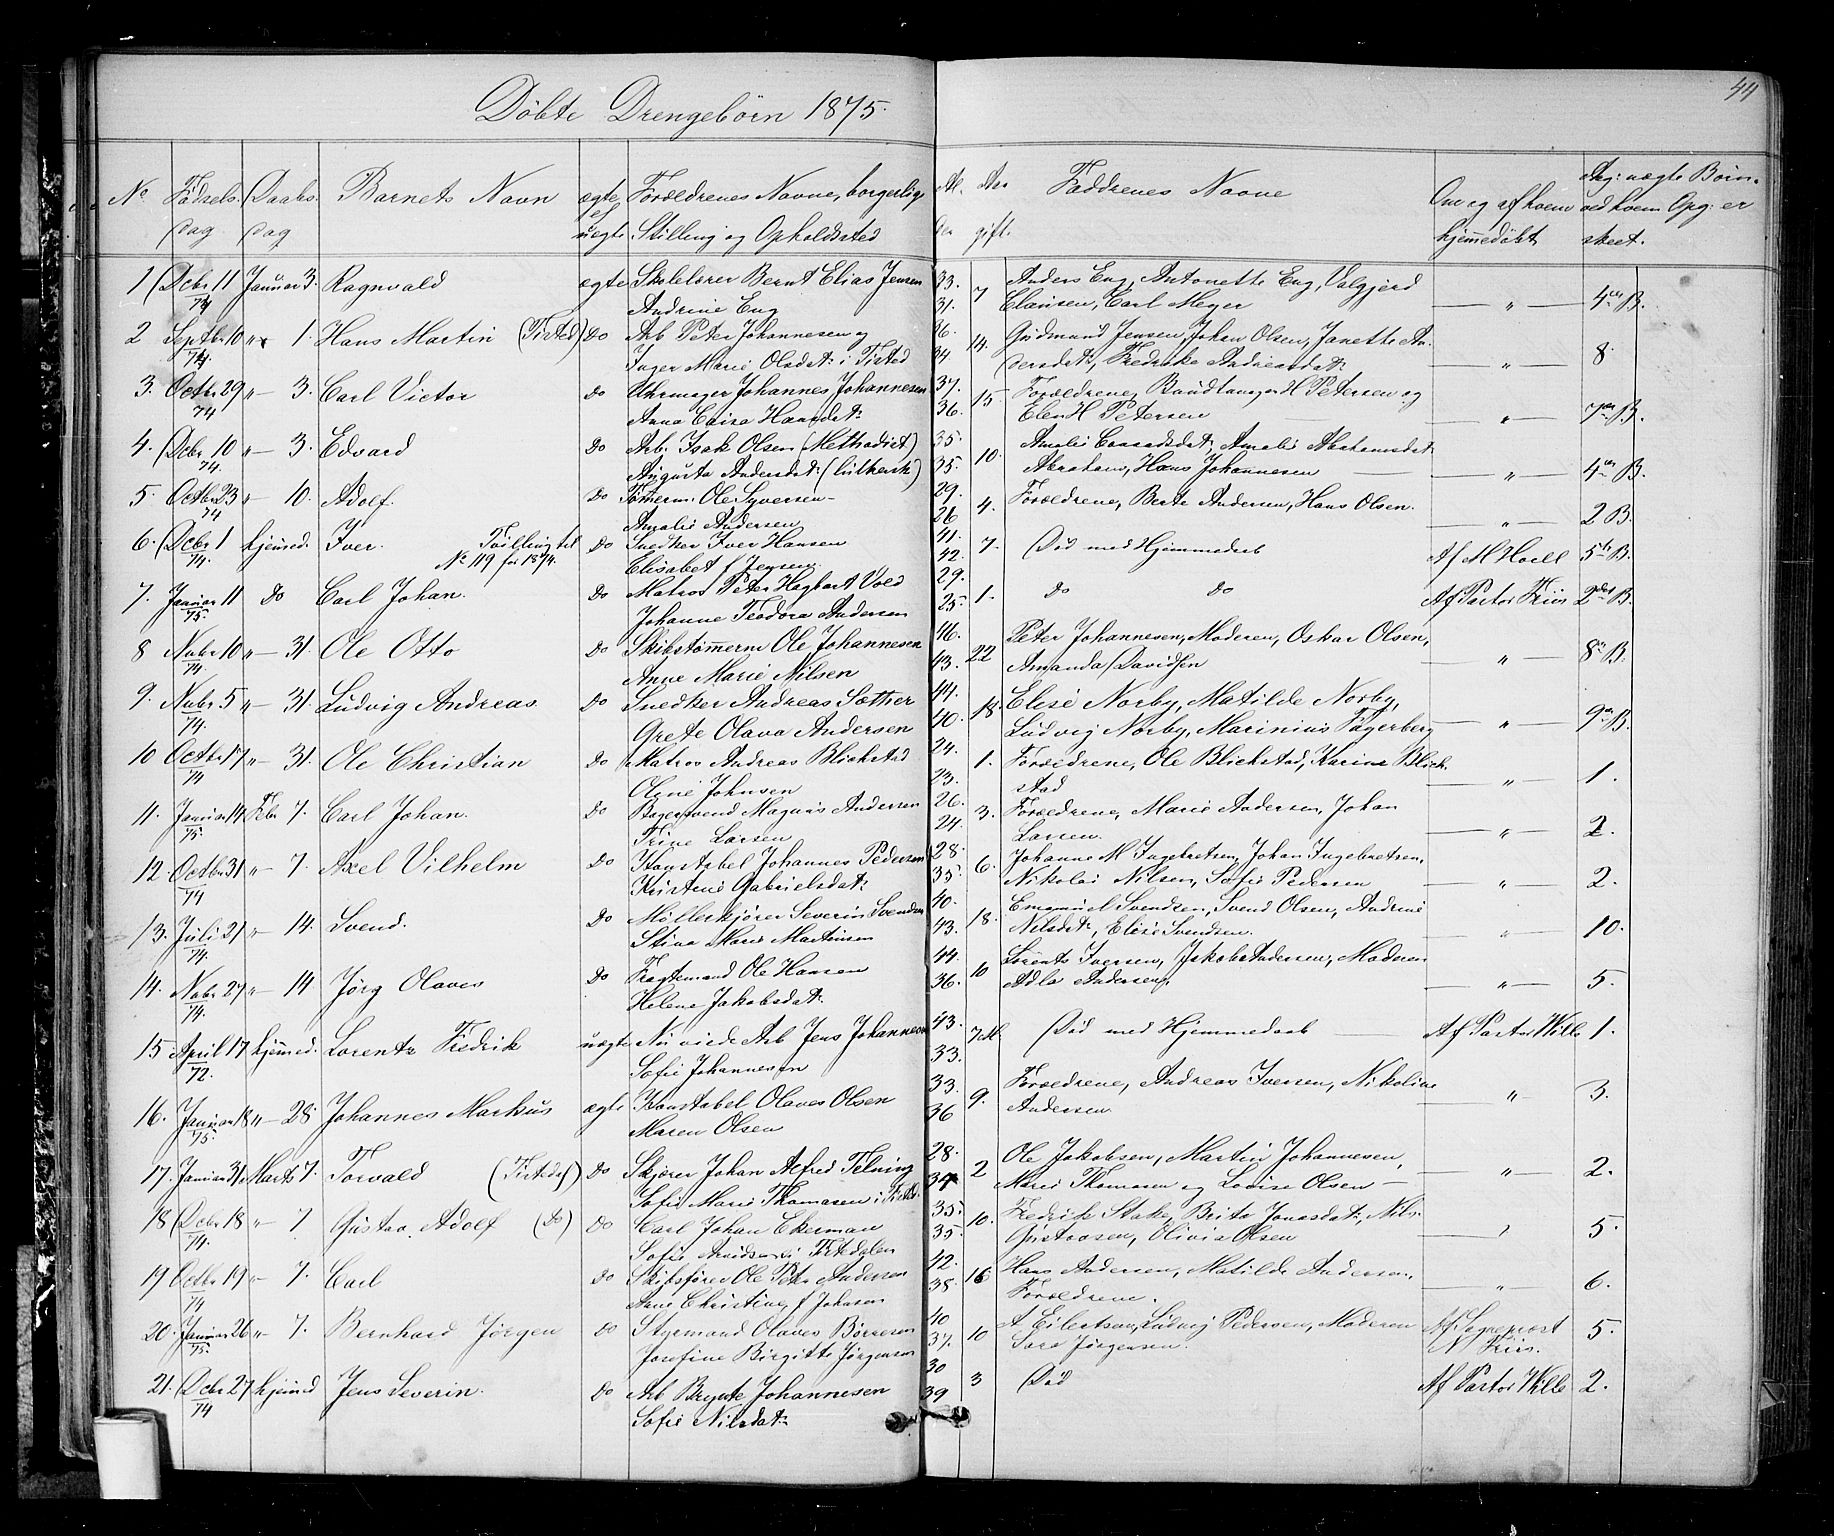 44
Döbte Drengebörn 1875.
No Fødsels- Daabs- Barnets Navn ægte Forældrenes Navne, borgerlig Al- Aar Faddrenes Navne Om og af hvem Ang: uægte Børn
dag dag el uægte Stilling og Opholdssted der gift. hjemmedøbt ved hvem Opg: er
skeet.
1 Dcbr 11 Januar 3. Ragnvald ægte Skolelærer Bernt Elias Jensen 33. 7 Anders Eng, Antonette Eng, Valgjerd
74 Andrine Eng 31. Clausen, Carl Meyer " 4 B.
2 Septbr 10 " 1. Hans Martin (Tistad) Do Arb Peter Johannesen og 26. 14. Gudmund Jensen, Johan Olsen, Janette An-
74 Inger Marie Olsdat: i Tistad 34. dersdat:, Fredrikke Andreasdat: " 8
3. Octbr 29 " 3. Carl Victor Do Uhrmager Johannes Johannesen 37. 15. Forældrene, H Petersen og
74 Anna 36. Elen H Petersen " 7 B.
4. Dcbr 10 " 3. Edvard Do Arb. Isak Olsen (Methodist) 35. 10. Amalie Amalie Abrahamsdat:
74. Augusta Andersdat: (Luthersk) 35. Abrahams, Hans Johannesen " 4 B.
5. Octbr 23 " 10. Adolf. Do Tømerm: Ole Syversen 29. 4. Forældrene, Berte Andersen, Hans Olsen.
74 Amalie Andersen 26 " 2 B.
6. Dcbr 1 hjemed. Iver. Tvilling til Do Snedker Iver Hansen 41. 7. Död med Hjemmedaab Af M Hvell 5 B.
74. No 119 for 1874. Elisabet f Jensen 42.
7. Januar 11 Do Carl Johan. Do Matros Peter Hagbart Vold 29. 1. Do Do Af Pastor Friis 2 B.
75. Johanne Teodora Andersen 25.
8 Nvbr 10 " 31. Ole Otto Do Skibstømerm Ole Johannesen 46. 22 Peter Johannesen, Moderen, Oskar Olsen,
74 Anne Marie Nilsen 43. Amanda Davidsen " 8 B.
9. Nvbr 5 " 31. Ludvig Andreas Do Snedker Andreas Sæther 44. 18 Elise Norby, Matilde Norby,
74. Grete Olava Andersen 40. Ludvig Norby, Marinius Fagerberg " 9 B.
10 Octbr 17 " 31. Ole Christian Do Matros Andreas Blickstad 24. 1. Forældrene, Ole Blickstad, Karine Blick
74 Olene Johnsen 23. stad " 1.
11. Januar 14 Febr 7. Carl Johan. Do Bagersvend Magnus Andersen 26. 3. Forældrene, Marie Andersen, Johan
75. Trine Larsen 24. Larsen. " 2.
12. Octbr 31 " 7. Axel Vilhelm Do Konstabel Johannes Pedersen 28. 6. Johanne M Ingebretsen, Johan Ingebretsen,
74 Kristine Gabrielsdat: 35. Nikolai Nilsen, Sofie Pedersen " 2.
13. Juli 21 " 14. Svend. Do Møllerkjörer Severin Svendsen 40. 18. Emanuel Svendsen, Svend Olsen, Andrine
74. Stina Marie Martinsen 43. Nilsdat:, Elise Svendsen. " 10.
14. Nvbr 27 " 14 Jørg Olaves Do Fragtemand Ole Hansen 44. 10 Lorents Iversen, Jakob Andersen, Moderen
74. Helene Jakobsdat: 36. Adla Andersen, " 5.
15 April 17 hjemed. Lorentz Fredrik uægte Nu viede Arb Jens Johannesen 43. 7 M. Död med Hjemmedaab Af Pastor Wille 1.
72. Sofie Johannesen 33.
16. Januar 18 " 28 Johannes Markus ægte Konstabel Olaves Olsen 33. 9. Forældrene, Andreas Iversen, Nikoline
75. Maren Olsen 36 Andersen. " 3.
17. Januar 31. Marts 7. Torvald (Tistedal) Do Skjærer Johan Alfred Telning 28. 2 Ole Jakobsen, Martin Johannesen,
Sofie Marie Thomasen i Tistd. 34 Marie Thomasen og Lovise Olsen " 2.
18 Dcbr 18 " 7 Gustav Adolf (Do) Do Carl Johan Ekerman 35. 10. Fredrik Stake, Brita Jonasdat:, Nils
74. Sofie Arvidsen i Tistedalen 35. Gustavsen, Olivia Olsen " 5.
19 Octbr 19 " 7. Carl Do Skibsfører Ole Petter Andersen 42. 16 Hans Andersen, Matilde Andersen,
74 Anne Christine f Johnsen 38. Forældrene. " 6.
20. Januar 26 " 7. Bernhard Jørgen Do Styrmand Olaves Börresen 40 10 A Eilertsen, Ludvig Pedersen, Moderen Af Sogneprest 5.
75. Josefine Birgitte Jørgensen 37. Sara Jörgensen. N Friis.
21. Dcbr 27 hjemed Jens Severin. Do Arb Brynte Johannesen 30 3 Död Af Pastor Wille 2.
74 Sofie Nilsdat: 39